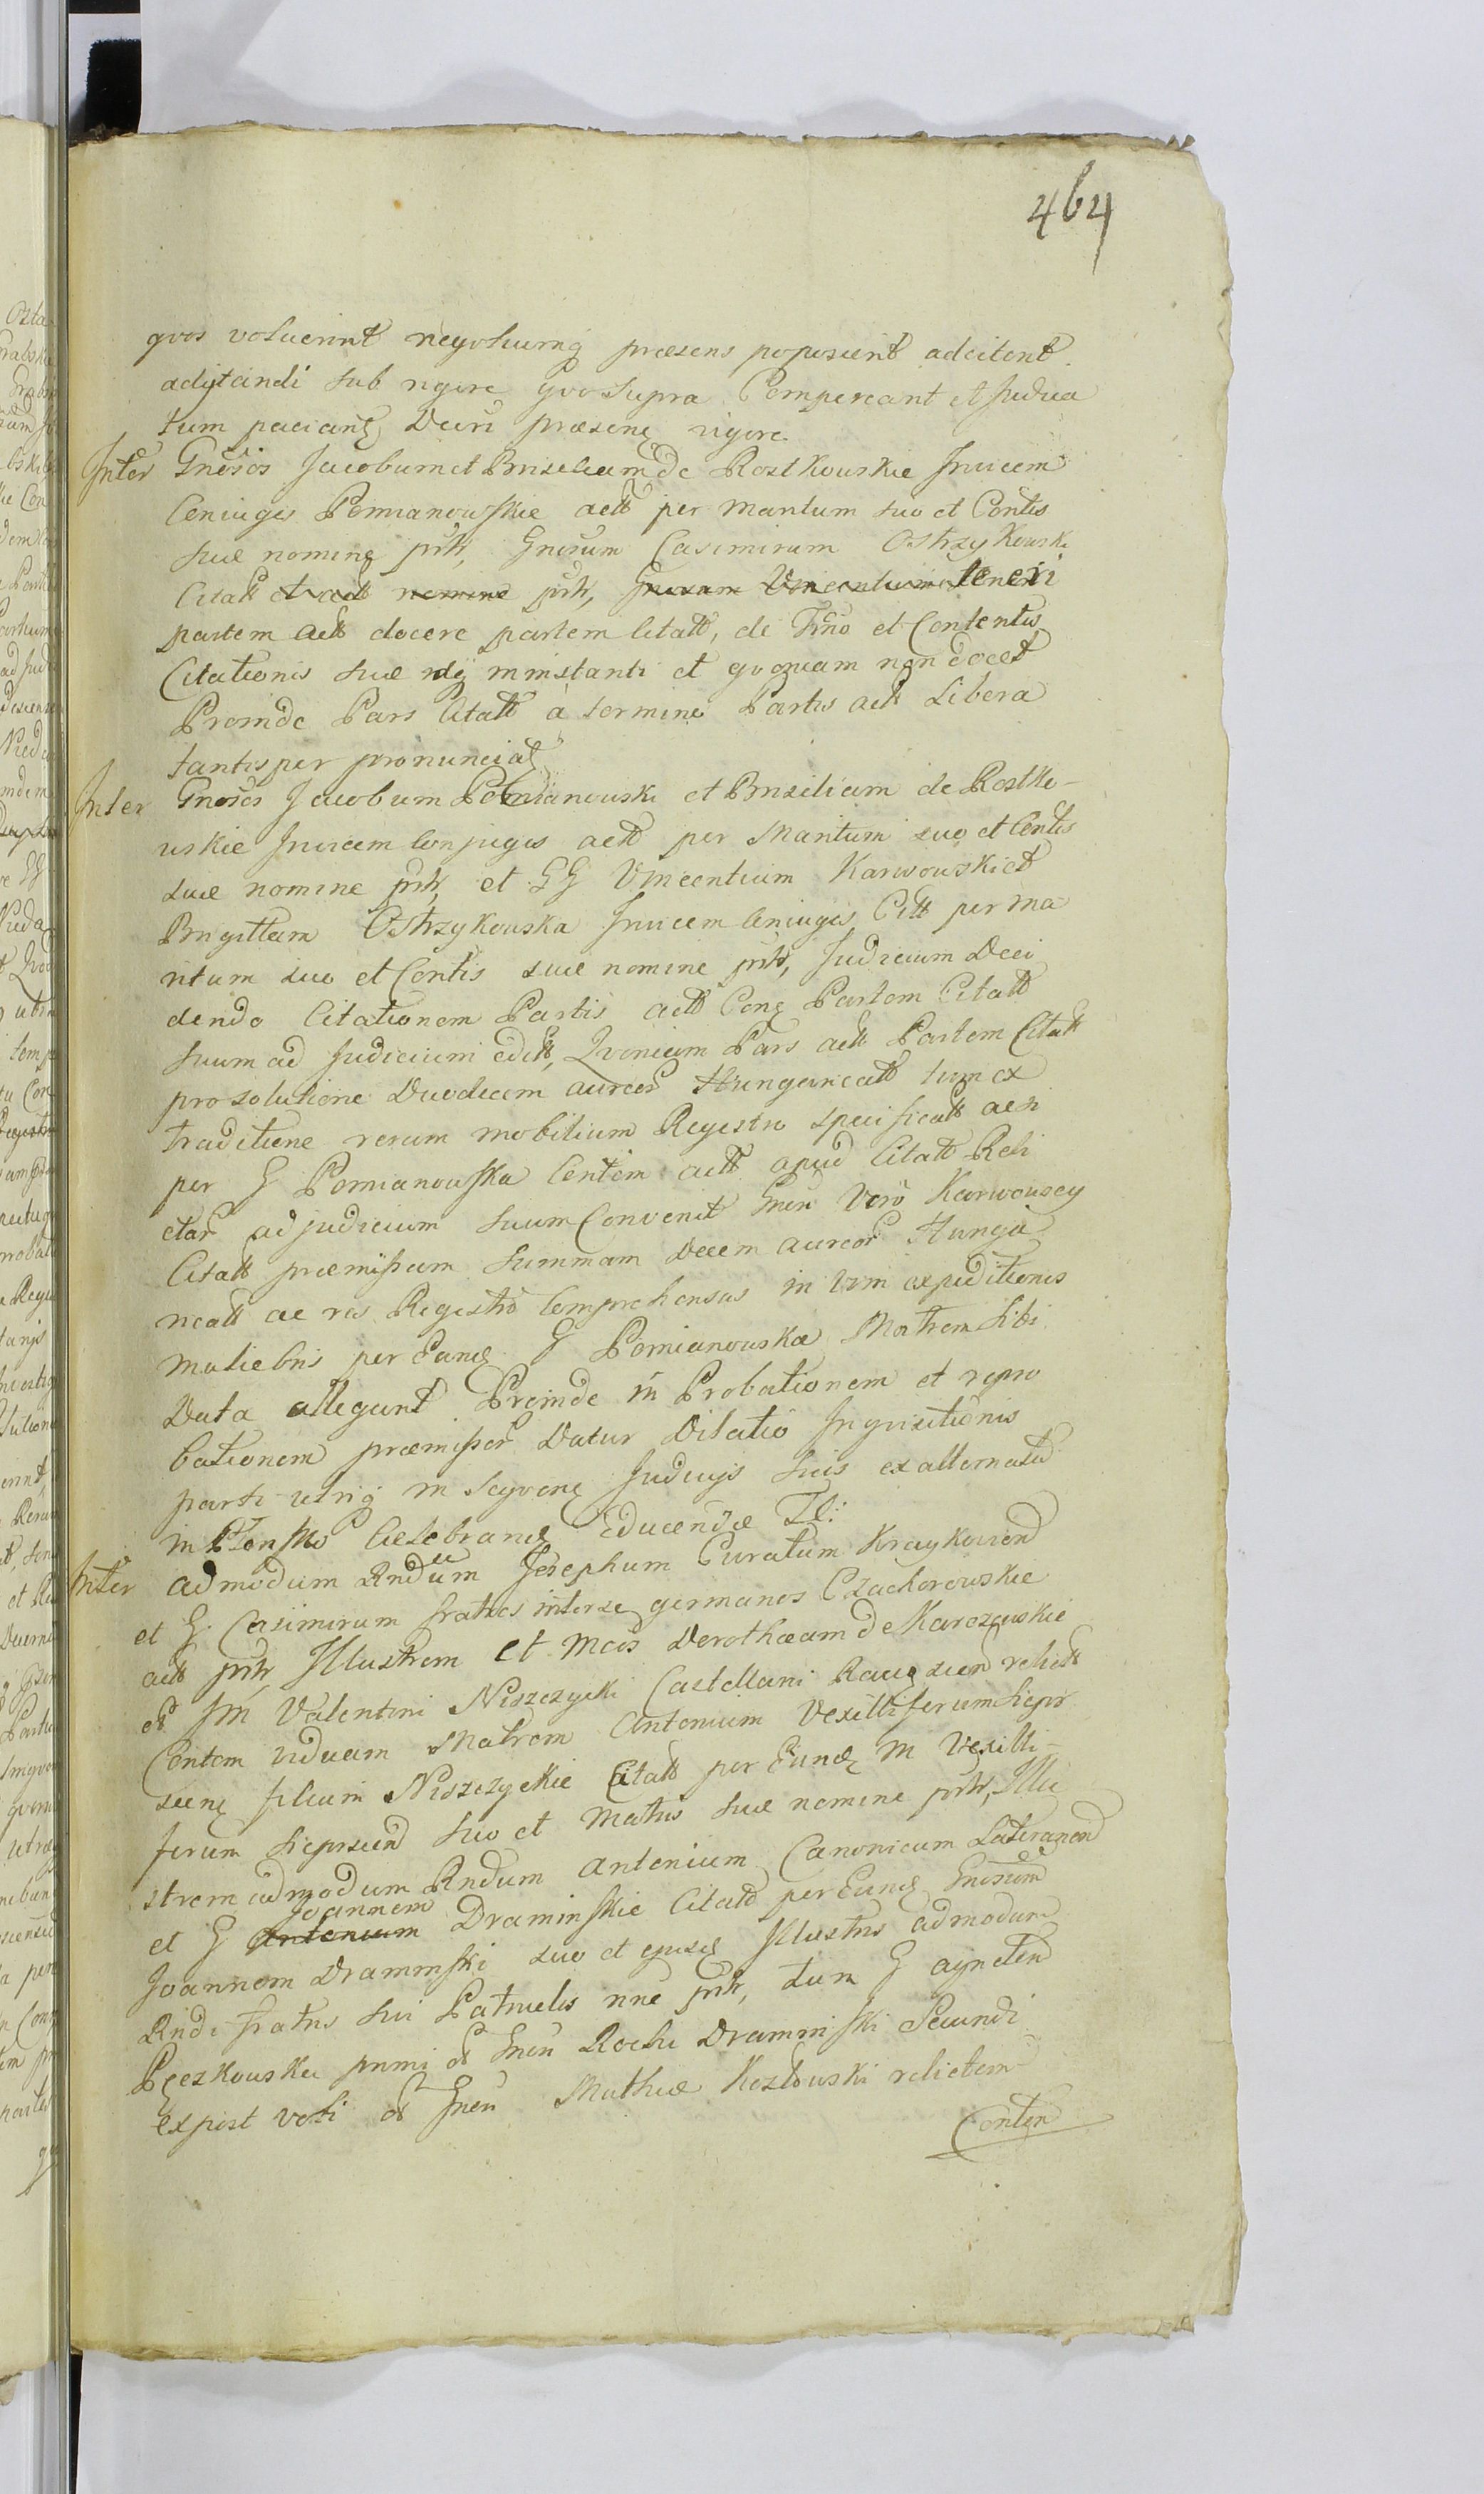 464
qvos voluerint negotiumq praesens poposcerit adcitent
adcitandi sub rigore qvo supra Compereant et Judica
tum paciantq Decri praesenq rigore
Inter Gnosos Jacobum et Briseliam de Rostkowskie Invicem
Coniuges Pomianowskie actt per Maritum suo et Contis
suae nomine prtt, Gnosum Casimirum Ostrzykowski
Citatt et actt nomine prtt, Gnosum Vincentium teneri
partem actt docere partem Citatt, de Tmo et Contentis
Citationis suae idq instanti et qvoniam non docet
Proinde Pars Citatt à termino Partis actt Libera
tantisper pronunciatq
Inter Gnosos Jacobum Pomianowski et Brisiliam de Rostko-
wskie Invicem Conjuges actt per Maritum suo et Contis
suae nomine prtt, et GG Vincentium Karwowski et
Brigittam Ostrzykowska Invicem Coniuges Citt per Ma
ritum suo et Contis suae nomine prtt, Judicium Deci
dendo Citationem Partis actt Conq Partem Citatt
suum ad Judicium editt, Qvoniam Pars actt Partem Citatt
pro solutione Duodecim aureor Hungaricatt tum ex
traditione rerum mobilium Regestro specificatt aeri
per G Pomianowska Contem actt apud Citatt Reli
ctar ad judicium suum Convenit Gnesi Vero Karwowscy
Citatt praemissam summam Decem aureor Hunga
ricatt ac res Regestro Comprehensas in vim expeditionis
muliebris per Eandq G Pomianowska Matrem sibi
Data allegant Proinde in Probationem et repro
bationem praemissor Datur Dilatio Inqvisitionis
parti utriq in seqvenq Judicijs suis ex alternata
in Płonsko Celebrandq educendae Tl:
Inter admodum Rndum Josephum Curatum Kraykoviend
et G Casimirum fratres inter se germanos Czachorowskie
actt prtt, Illustrem et Mcos Dorotheam de Karczewskie
ol Im Valentini Niszczycki Castellani Raciq sien relictt
Contem viduam Matrem Antonium Vexilliferum Sieprs
sienq filium Niszczyckie Citatt per Eundq M Vexilli-
ferum Sieprsiend suo et Matris suae nomine prtt, Illu
strem admodum Rndum Antonium Canonicum Lateranend
et G Antonium Joannem Draminskie Citatt per Eundq Gnosum
Joannem Draminski suo et ejusdq Illustris admodum
Rndi fratris sui Patruelis nne prtt, tum G agnetem
Pęczkowska primi ol Gnen Rochi Draminski Secundi
ex post voti ol Gnen Mathiae Kozłowski relictam
Conten